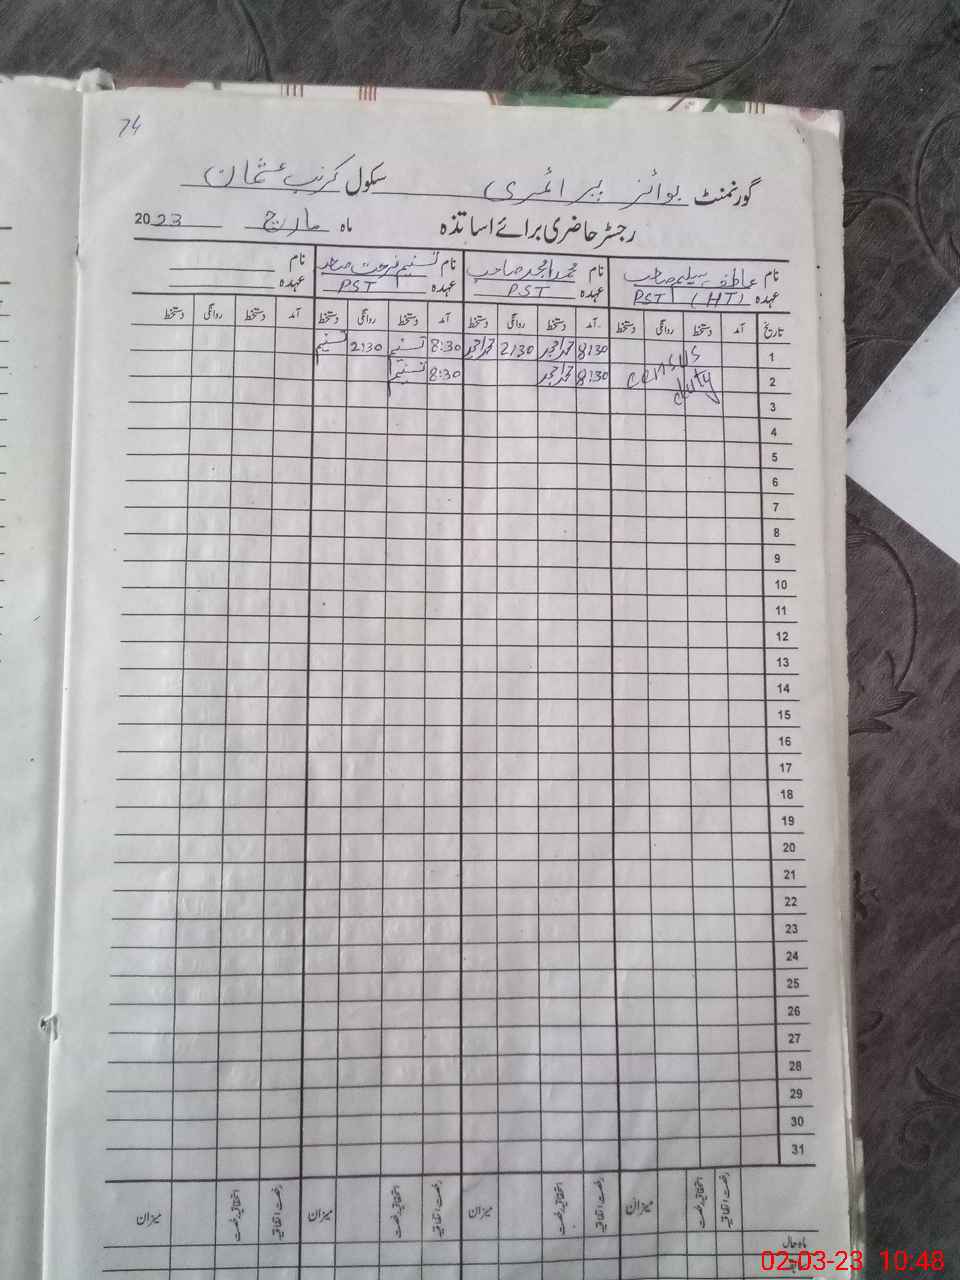 74
گورنمنٹ بوائز پرائمری سکول کرنب عثمان
رجسٹر حاضری برائے اساتذہ ماہ مارچ 2023
نام عاطف سلیم صاحب نام محمد امجد صاحب نام تسنیم فرحت صاحبہ نام
عہدہ PST (HT) عہدہ PST عہدہ PST عہدہ
تاریخ آمد دستخط روانگی دستخط آمد دستخط روانگی دستخط آمد دستخط روانگی دستخط آمد دستخط روانگی دستخط
1 census 8:30 محمد امجد 2:30 محمد امجد 8:30 تسنیم 2:30 تسنیم
2 duty 8:30 محمد امجد 8:30 تسنیم
3
4
5
6
7
8
9
10
11
12
13
14
15
16
17
18
19
20
21
22
23
24
25
26
27
28
29
30
31
رخصت اتفاقیہ استحقاقیہ رخصت میزان رخصت اتفاقیہ استحقاقیہ رخصت میزان رخصت اتفاقیہ استحقاقیہ رخصت میزان رخصت اتفاقیہ استحقاقیہ رخصت میزان
ماہ حال
02-03-23 10:48